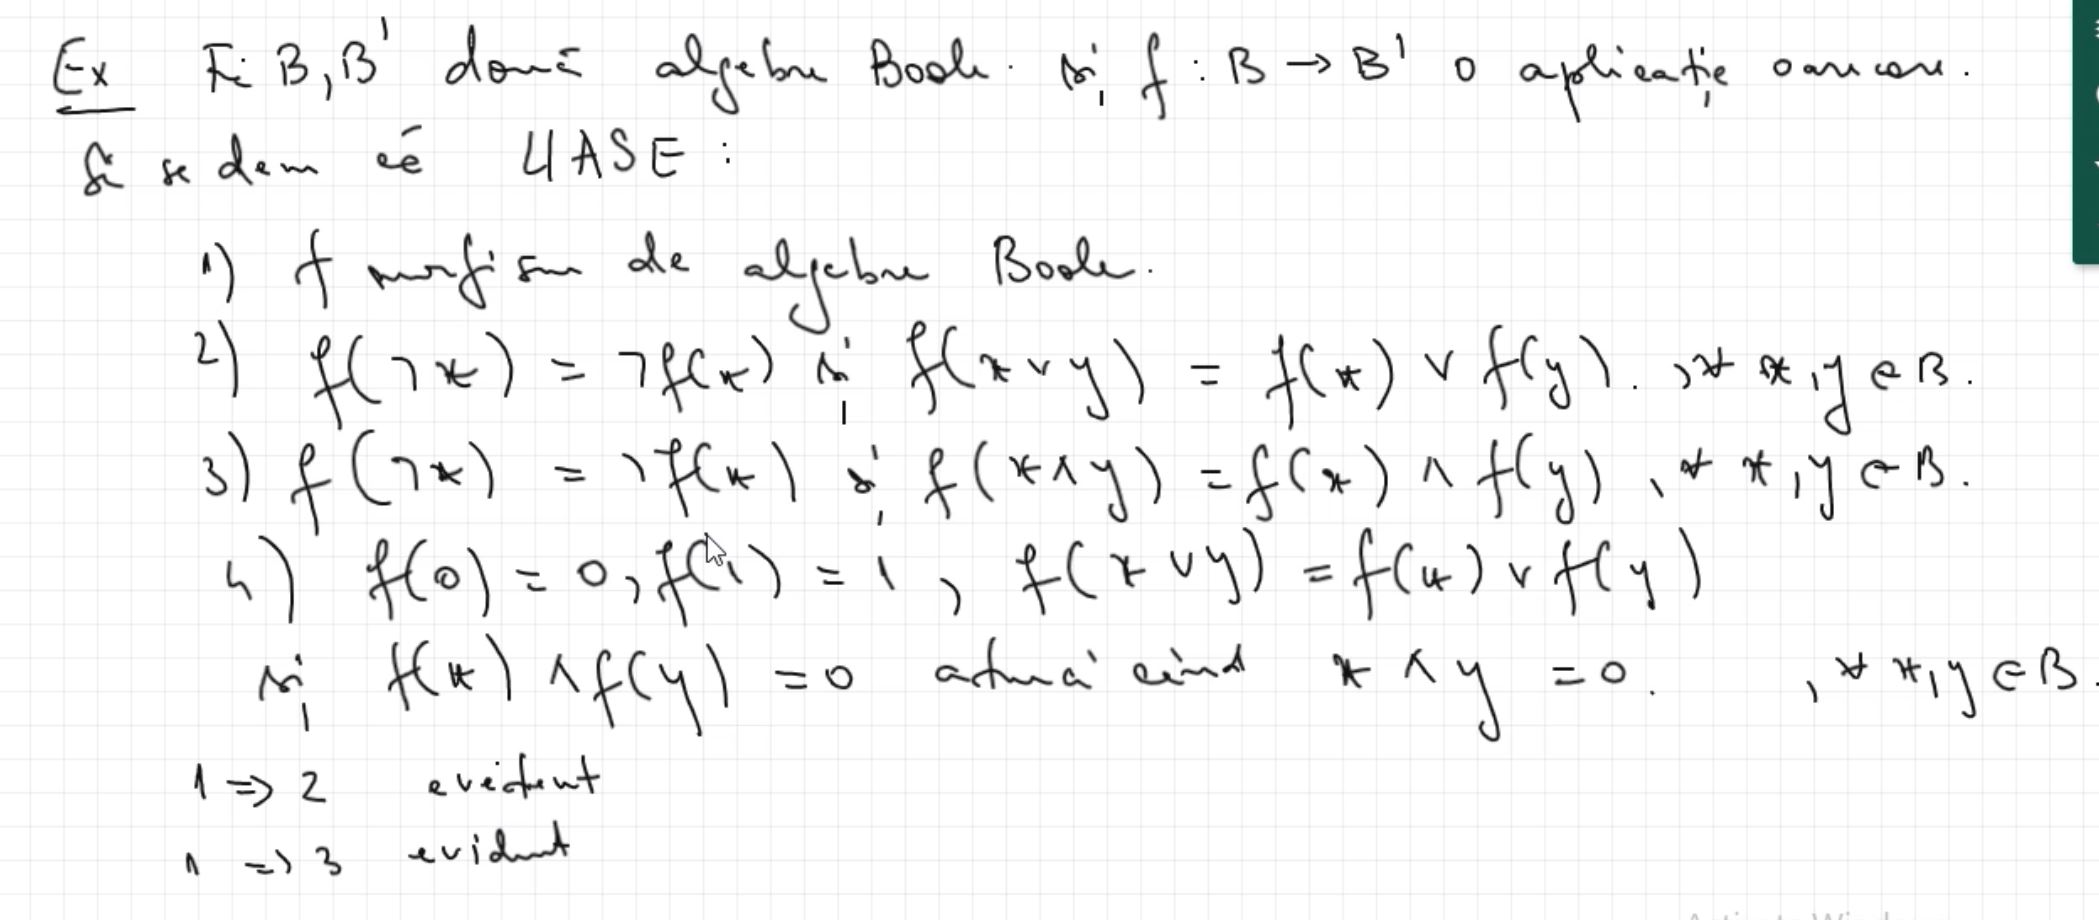 Ex Fie B, B' două algebre Boole. și f : B → B' o aplicație oarecare.
Să se dem că UASE :
1) f morfism de algebre Boole.
2) f(¬x) = ¬f(x) și f(x ∨ y) = f(x) ∨ f(y). , ∀ x, y ∈ B.
3) f(¬x) = ¬f(x) și f(x ∧ y) = f(x) ∧ f(y) , ∀ x, y ∈ B.
4) f(0) = 0, f(1) = 1 , f(x ∨ y) = f(x) ∨ f(y)
și f(x) ∧ f(y) = 0 atunci când x ∧ y = 0. , ∀ x, y ∈ B.
1 => 2 evident
1 => 3 evident